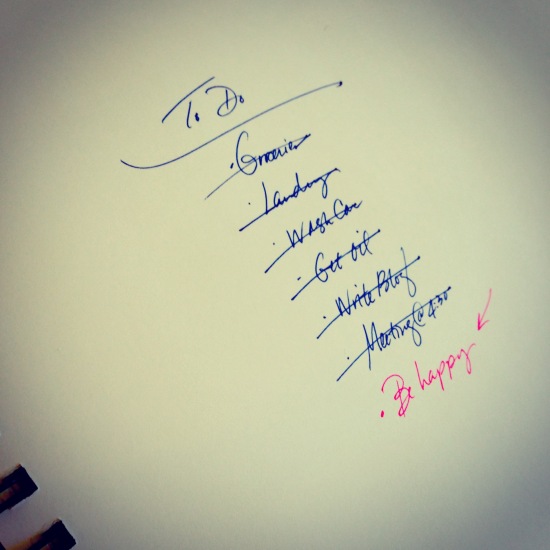 To Do
· Groceries
· Laundry
· Wash Car
· Get Oil
· Write Blog
· Meeting @ 4:30
· Be happy